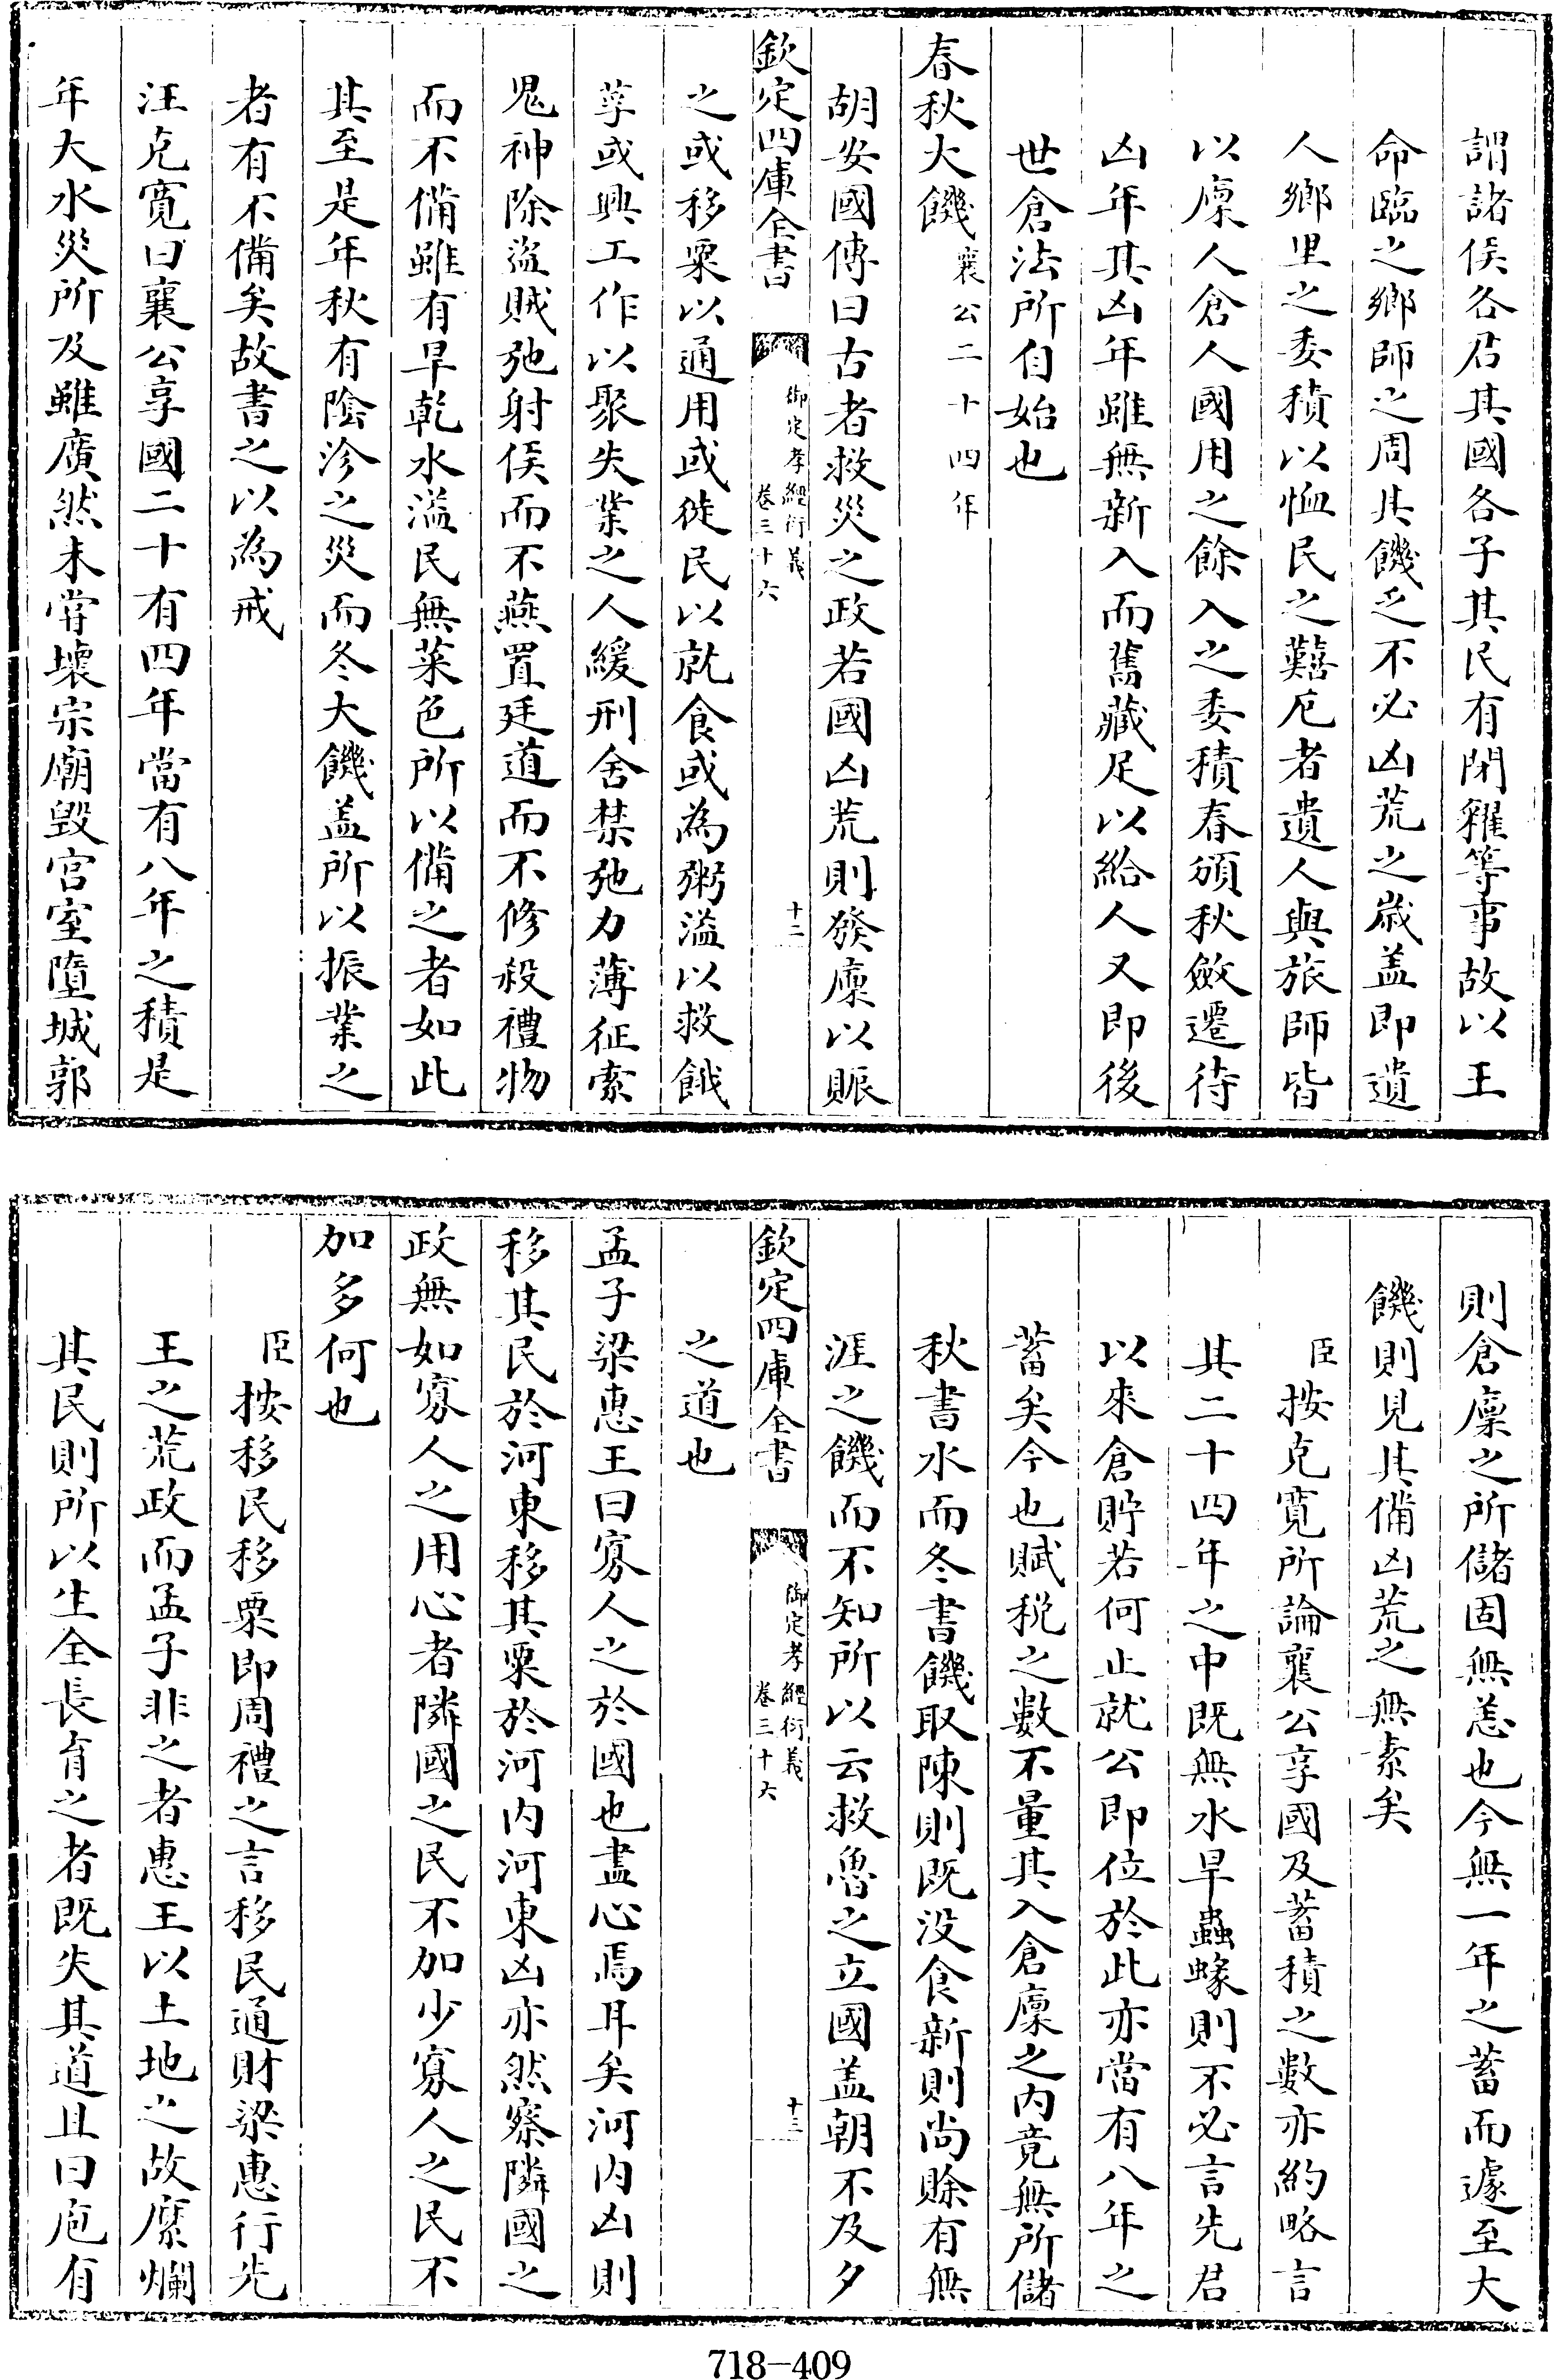 謂諸侯各君其國各子其民有閉糴等事故以王
命臨之鄉師之周其饑乏不必凶荒之歲盖即遺
人鄉里之委積以恤民之囏戹者遺人與旅師皆
以廩人倉人國用之餘入之委積春頒秋斂遷待
凶年其凶年雖無新入而舊藏足以給人又即後
世倉法所自始也
春秋大饑襄公二十四年
胡安國傳曰古者救災之政若國凶荒則發廩以賑
欽定四庫全書
御定孝經衍義
卷三十六
十二
之或移粟以通用或徙民以就食或為粥溢以救餓
莩或興工作以聚失業之人緩刑舍禁弛力薄征索
鬼神除盜賊弛射侯而不燕置廷道而不修殺禮物
而不備雖有旱乾水溢民無菜色所以備之者如此
其至是年秋有陰沴之災而冬大饑盖所以振業之
者有不備矣故書之以為戒
汪克寬曰襄公享國二十有四年當有八年之積是
年大水災所及雖廣然未嘗壞宗廟毀宮室墮城郭
則倉廩之所儲固無恙也今無一年之蓄而遽至大
饑則見其備凶荒之無素矣
臣按克寬所論襄公享國及蓄積之數亦約略言
其二十四年之中既無水旱蟲蝝則不必言先君
以來倉貯若何止就公即位於此亦當有八年之
蓄矣今也賦稅之數不量其入倉廩之內竟無所儲
秋書水而冬書饑取陳則既沒食新則尚賒有無
涯之饑而不知所以云救魯之立國盖朝不及夕
欽定四庫全書
御定孝經衍義
卷三十六
十三
之道也
孟子梁惠王曰寡人之於國也盡心焉耳矣河內凶則
移其民於河東移其粟於河內河東凶亦然察隣國之
政無如寡人之用心者隣國之民不加少寡人之民不
加多何也
臣按移民移粟即周禮之言移民通財梁惠行先
王之荒政而孟子非之者惠王以土地之故糜爛
其民則所以生全長育之者既失其道且曰庖有
718-409